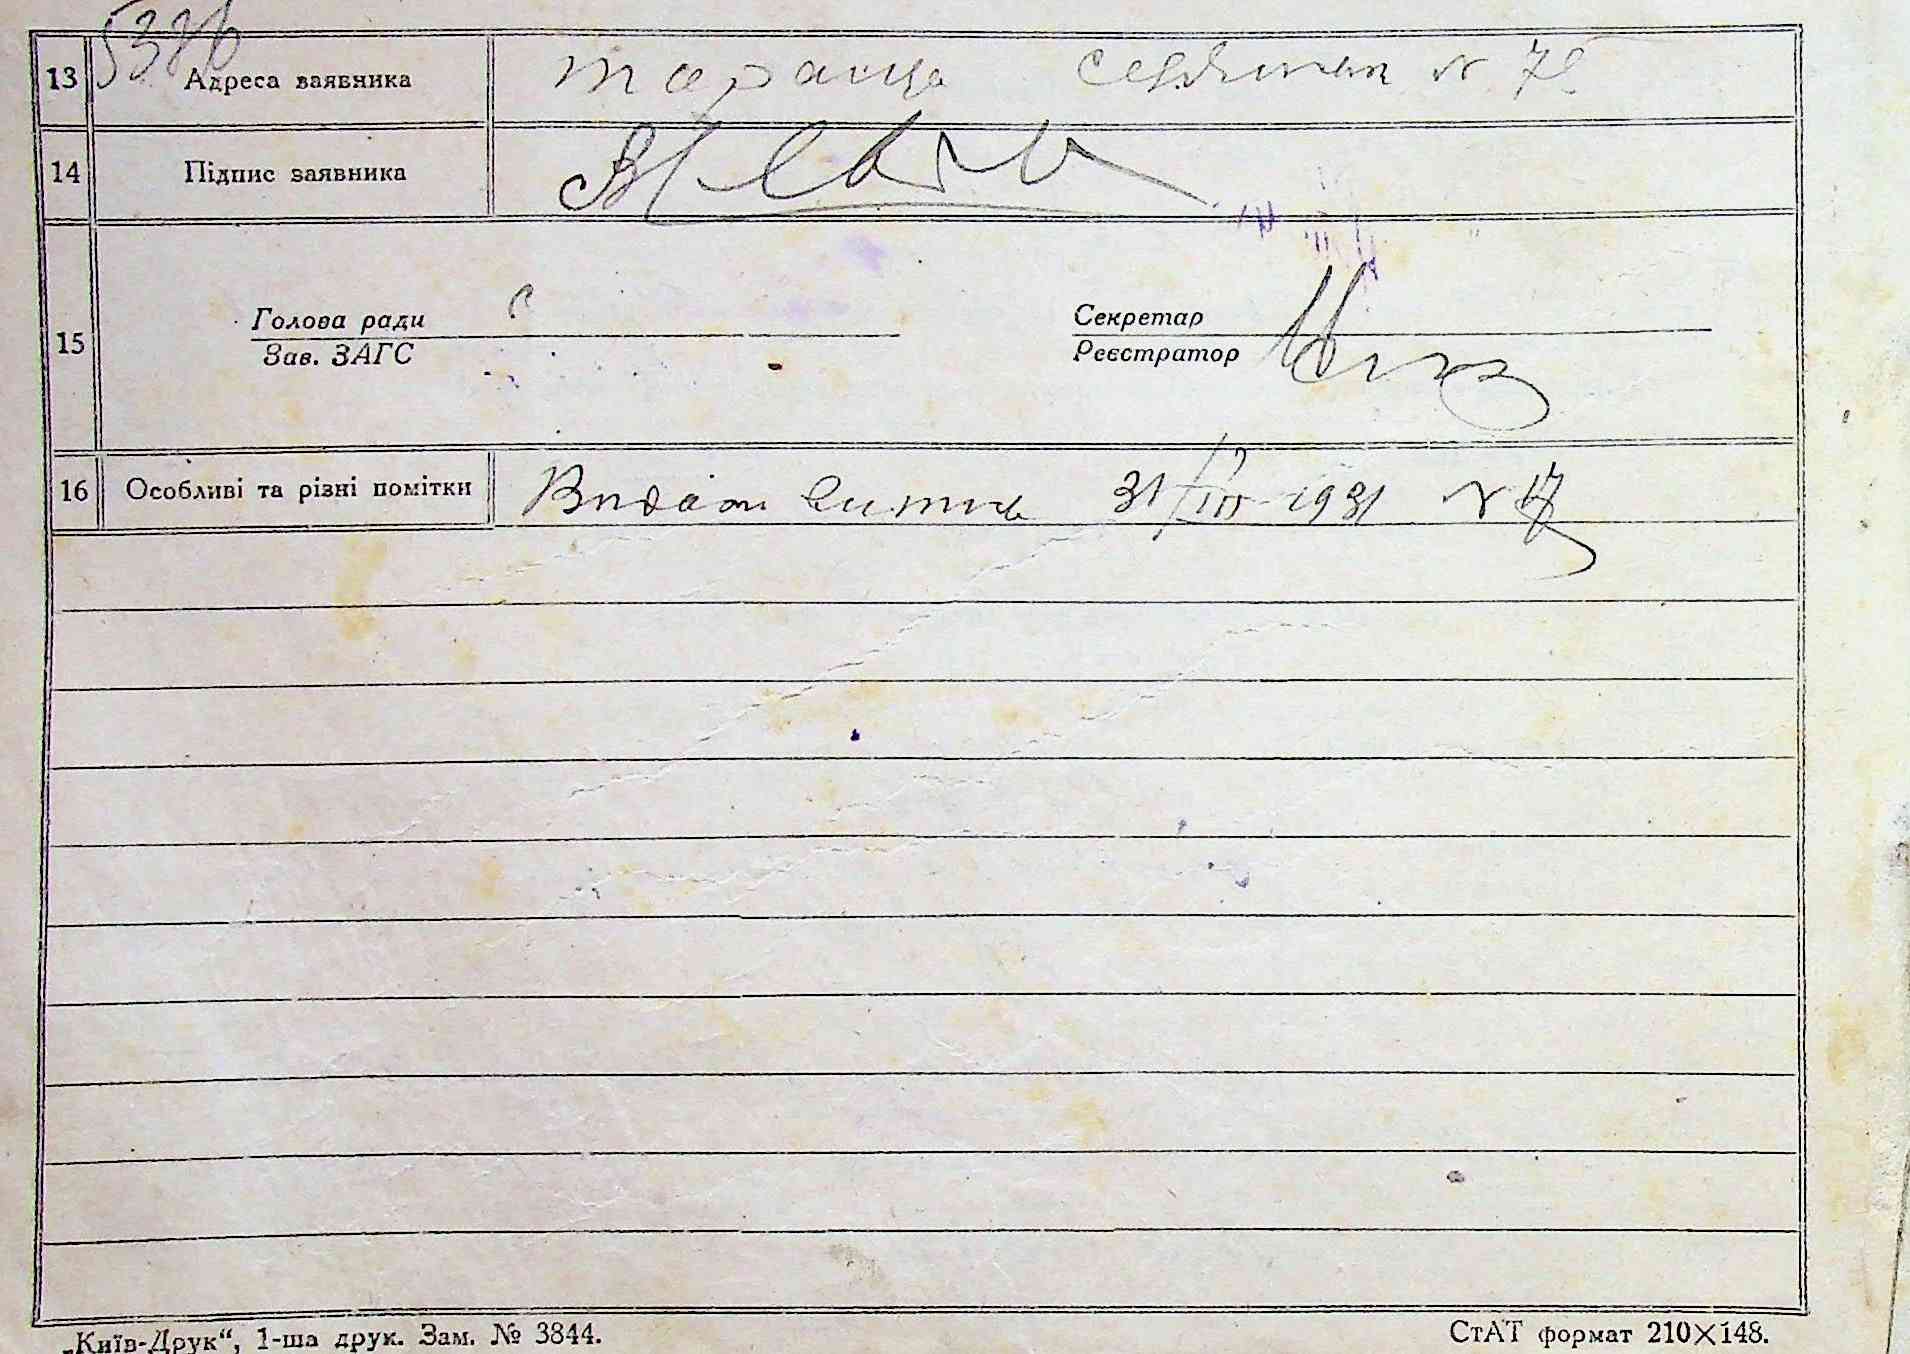 5386
13 Адреса заявника Тараща № 75
14 Підпис заявника
Голова ради Секретар
15
Зав. ЗАГС Реєстратор
16 Особливі та різні помітки Видан витяг 31/III-1931 № 17
„Київ-Друк“, 1-ша друк. Зам. № 3844. СтАТ формат 210×148.